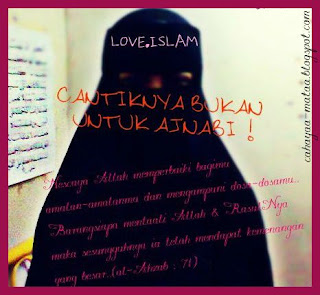 LOVE.ISLAM
CANTIKNYA BUKAN
UNTUK AJNABI !
Nescaya Allah memperbaiki bagimu
amalan-amalanmu dan mengampuni dosa-dosamu..
Barangsiapa mentaati Allah & Rasul Nya
maka sesungguhnya ia telah mendapat kemenangan
yang besar..(al-Ahzab : 71)
cahayaa-mataa.blogspot.com